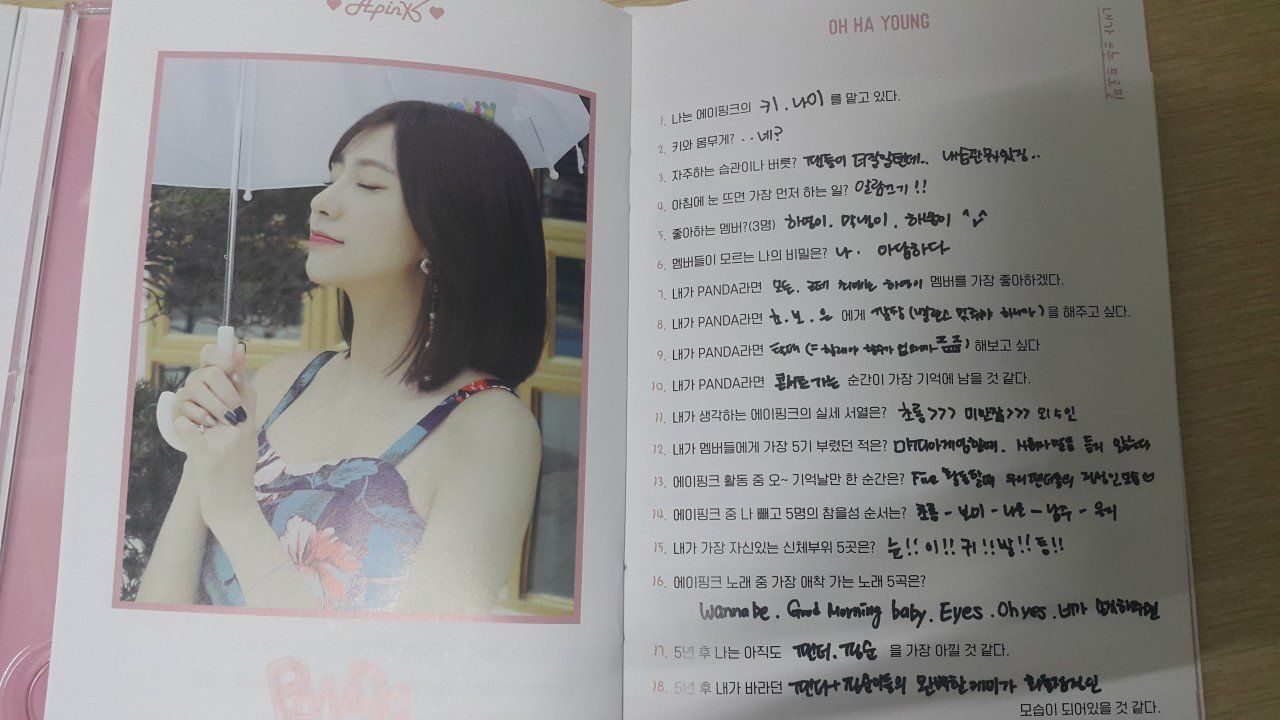 Apink
PANDA
OH HA YOUNG
내가 쓰는 프로필
1. 나는 에이핑크의 키. 나이 를 맡고 있다.
2. 키와 몸무게? ..네?
3. 자주하는 습관이나 버릇? 팬들이 더잘알텐데.. 내습관뭐있지..
4. 아침에 눈 뜨면 가장 먼저 하는 일? 알람끄기!!
5. 좋아하는 멤버?(3명) 하영이. 막냉이. 하빵이 ^^
6. 멤버들이 모르는 나의 비밀은? 나. 아담하다
7. 내가 PANDA라면 모든. 근데 최애는 하영이 멤버를 가장 좋아하겠다.
8. 내가 PANDA라면 초.보.은 에게 을 해주고 싶다.
9. 내가 PANDA라면 해보고 싶다
10. 내가 PANDA라면 콘서트가는 순간이 가장 기억에 남을 것 같다.
11. 내가 생각하는 에이핑크의 실세 서열은? 초롱>>> >>>
12. 내가 멤버들에게 가장 5기 부렸던 적은? 마피아게임할때. 듣지 않는다
13. 에이핑크 활동 중 오~ 기억날만 한 순간은? Five 활동할때 우리팬더들의 모습♡
14. 에이핑크 중 나 빼고 5명의 참을성 순서는? 초롱-보미-나은-남주-은지
15. 내가 가장 자신있는 신체부위 5곳은? 눈!! 이!! 귀!! 발!! 등!!
16. 에이핑크 노래 중 가장 애착 가는 노래 5곡은?
Wanna be. Good Morning baby. Eyes. Oh yes. 네가 손짓해주면
17. 5년 후 나는 아직도 팬더. 핑순 을 가장 아낄 것 같다.
18. 5년 후 내가 바라던 팬더+핑순이들의 완벽한케미가
모습이 되어있을 것 같다.